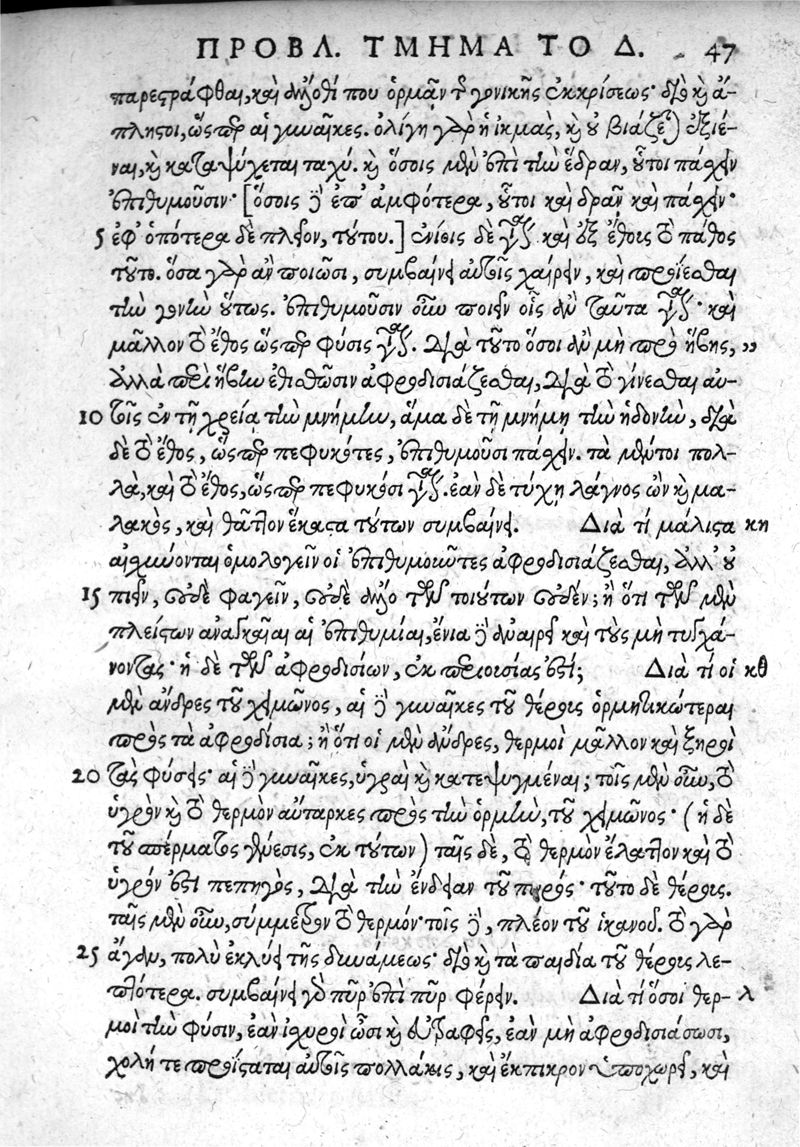 ΠΡΟΒΛ. ΤΜΗΜΑ ΤΟ Δ. 47
παρεστράφθαι, καὶ δηλονότι που ὁρμᾶν τῆς γονικῆς ἐκκρίσεως· διὸ καὶ ἄ-
πληστοι, ὥσπερ αἱ γυναῖκες. ὀλίγη γὰρ ἡ ἰκμὰς, καὶ οὐ βιάζεται ἐξιέ-
ναι, καὶ καταψύχεται ταχύ. καὶ ὅσοις μὲν ἐπὶ τὴν ἕδραν, οὗτοι πάσχειν
ἐπιθυμοῦσιν· [ὅσοις δὲ ἐπ' ἀμφότερα, οὗτοι καὶ δρᾶν καὶ πάσχειν·
5 ἐφ' ὁπότερα δὲ πλεῖον, τούτου.] ἐνίοις δὲ γίνεται καὶ ἐξ ἔθους τὸ πάθος
τοῦτο. ὅσα γὰρ ἂν ποιῶσι, συμβαίνει αὐτοῖς χαίρειν, καὶ προΐεσθαι
τὴν γονὴν οὕτως. ἐπιθυμοῦσιν οὖν ποιεῖν οἷς ἂν ταῦτα γίνεται· καὶ
μᾶλλον τὸ ἔθος ὥσπερ φύσις γίνεται. Διὰ τοῦτο ὅσοι ἂν μὴ πρὸ ἥβης, ”
ἀλλὰ περὶ ἥβην ἐθισθῶσιν ἀφροδισιάζεσθαι, Διὰ τὸ γίνεσθαι αὐ-
10 τοῖς ἐν τῇ χρείᾳ τὴν μνήμην, ἅμα δὲ τῇ μνήμῃ τὴν ἡδονὴν, διὰ
δὲ τὸ ἔθος, ὥσπερ πεφυκότες, ἐπιθυμοῦσι πάσχειν. τὰ μέντοι πολ-
λὰ, καὶ τὸ ἔθος, ὥσπερ πεφυκόσι γίνεται. ἐὰν δὲ τύχῃ λάγνος ὢν καὶ μα-
λακὸς, καὶ θᾶττον ἕκαστα τούτων συμβαίνει. Διὰ τί μάλιστα κη
αἰσχύνονται ὁμολογεῖν οἱ ἐπιθυμοῦντες ἀφροδισιάζεσθαι, ἀλλ' οὐ
15 πιεῖν, οὐδὲ φαγεῖν, οὐδὲ ἄλλο τῶν τοιούτων οὐδέν; ἢ ὅτι τῶν μὲν
πλείστων ἀναγκαῖαι αἱ ἐπιθυμίαι, ἔνια δὲ ἀναιρεῖ καὶ τοὺς μὴ τυγχά-
νοντας· ἡ δὲ τῶν ἀφροδισίων, ἐκ περιουσίας ἐστί; Διὰ τί οἱ κθ
μὲν ἄνδρες τοῦ χειμῶνος, αἱ δὲ γυναῖκες τοῦ θέρους ὁρμητικώτεραι
πρὸς τὰ ἀφροδίσια; ἢ ὅτι οἱ μὲν ἄνδρες, θερμοὶ μᾶλλον καὶ ξηροὶ
20 τὰς φύσεις· αἱ δὲ γυναῖκες, ὑγραὶ καὶ κατεψυγμέναι; τοῖς μὲν οὖν, τὸ
ὑγρὸν καὶ τὸ θερμὸν αὔταρκες πρὸς τὴν ὁρμὴν, τοῦ χειμῶνος· (ἡ δὲ
τοῦ σπέρματος γένεσις, ἐκ τούτων) ταῖς δὲ, τὸ θερμὸν ἔλαττον καὶ τὸ
ὑγρόν ἐστι πεπηγὸς, Διὰ τὴν ἔνδειαν τοῦ πυρός· τοῦτο δὲ θέρους.
ταῖς μὲν οὖν, σύμμετρον τὸ θερμόν· τοῖς δὲ, πλέον τοῦ ἱκανοῦ. τὸ γὰρ
25 ἄγαν, πολὺ ἐκλύει τῆς δυνάμεως· διὸ καὶ τὰ παιδία τοῦ θέρους λε-
πτότερα. συμβαίνει γὰρ πῦρ ἐπὶ πῦρ φέρειν. Διὰ τί ὅσοι θερ- λ
μοὶ τὴν φύσιν, ἐὰν ἰσχυροὶ ὦσι καὶ εὐτραφεῖς, ἐὰν μὴ ἀφροδισιάσωσι,
χολή τε προΐσταται αὐτοῖς πολλάκις, καὶ ἔκπικρον ὑποχωρεῖ, καὶ